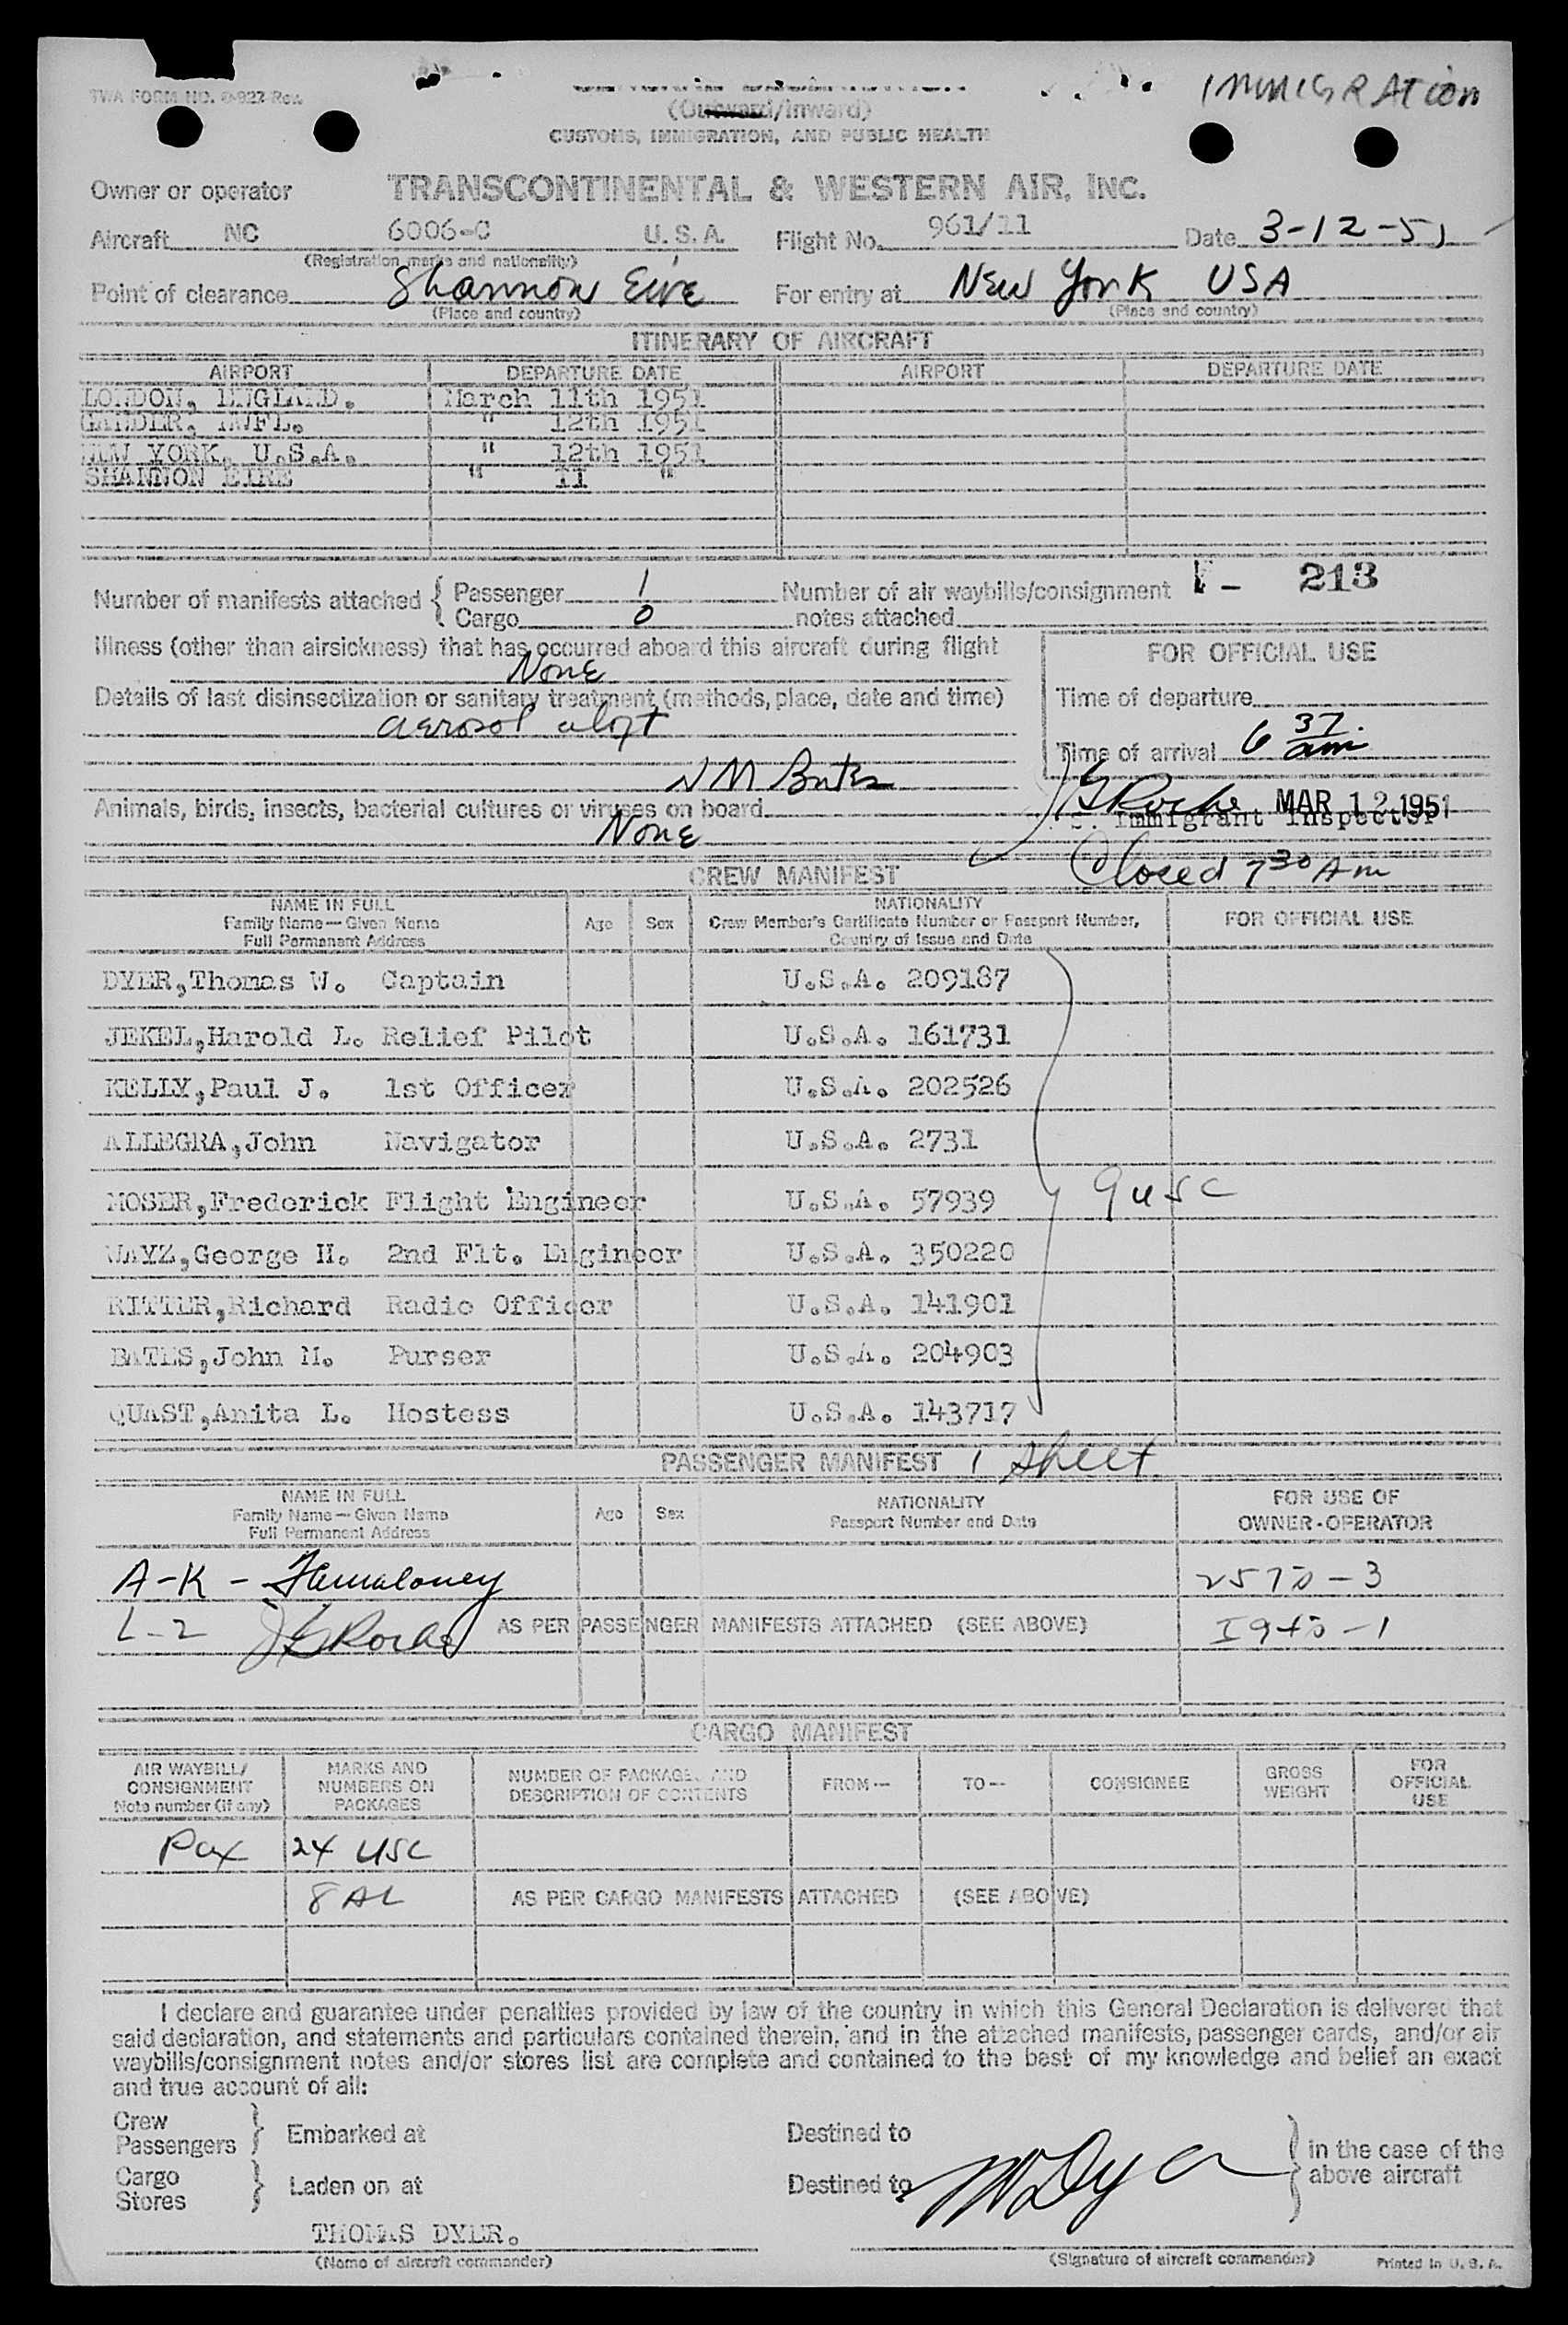 TWA FORM NO. 0-922 Rev.
IMMIGRATION
(Outward/Inward)
CUSTOMS, IMMIGRATION, AND PUBLIC HEALTH
Owner or operator TRANSCONTINENTAL & WESTERN AIR, INC.
Aircraft NC 6006-C U.S.A. Flight No. 961/11 Date 3-12-51
(Registration marks and nationality)
Point of clearance Shannon Eire For entry at New York USA
(Place and country) (Place and country)
ITINERARY OF AIRCRAFT
AIRPORT DEPARTURE DATE AIRPORT DEPARTURE DATE
LONDON, ENGLAND. March 11th 1951
GANDER, NWFL. " 12th 1951
NEW YORK, U.S.A. " 12th 1951
SHANNON EIRE " 11 "
Number of manifests attached { Passenger 1 Number of air waybills/consignment - 213
Cargo 0 notes attached
Illness (other than airsickness) that has occurred aboard this aircraft during flight
None
FOR OFFICIAL USE
Details of last disinsectization or sanitary treatment (methods, place, date and time)
aerosol aloft
Time of departure
Time of arrival 6 37 am
Animals, birds, insects, bacterial cultures or viruses on board
None
JG Roche MAR 12 1951
Immigrant Inspector
Closed 7 30 Am
CREW MANIFEST
NAME IN FULL
Family Name—Given Name
Full Permanent Address
Age Sex
NATIONALITY
Crew Member's Certificate Number or Passport Number,
Country of Issue and Date
FOR OFFICIAL USE
DYER,Thomas W. Captain U.S.A. 209187
JEKEL,Harold L. Relief Pilot U.S.A. 161731
KELLY,Paul J. 1st Officer U.S.A. 202526
ALLEGRA,John Navigator U.S.A. 2731
MOSER,Frederick Flight Engineer U.S.A. 57939
9 USC
WAYZ,George H. 2nd Flt. Engineer U.S.A. 350220
RITTER,Richard Radio Officer U.S.A. 141901
BATES,John M. Purser U.S.A. 204903
QUAST,Anita L. Hostess U.S.A. 143717
PASSENGER MANIFEST 1 sheet
NAME IN FULL
Family Name—Given Name
Full Permanent Address
Age Sex
NATIONALITY
Passport Number and Date
FOR USE OF
OWNER-OPERATOR
A-K - - 3
L-2 JG Roche AS PER PASSENGER MANIFESTS ATTACHED (SEE ABOVE) - 1
CARGO MANIFEST
AIR WAYBILL/
CONSIGNMENT
Note number (if any)
MARKS AND
NUMBERS ON
PACKAGES
NUMBER OF PACKAGES AND
DESCRIPTION OF CONTENTS
FROM— TO— CONSIGNEE
GROSS
WEIGHT
FOR
OFFICIAL
USE
Pax 24 USC
8 AL AS PER CARGO MANIFESTS ATTACHED (SEE ABOVE)
I declare and guarantee under penalties provided by law of the country in which this General Declaration is delivered that
said declaration, and statements and particulars contained therein, and in the attached manifests, passenger cards, and/or air
waybills/consignment notes and/or stores list are complete and contained to the best of my knowledge and belief an exact
and true account of all:
Crew
Passengers } Embarked at Destined to
Cargo
Stores } Laden on at Destined to
} in the case of the
above aircraft
TW Dyer
THOMAS DYER.
(Name of aircraft commander) (Signature of aircraft commander) Printed in U. S. A.